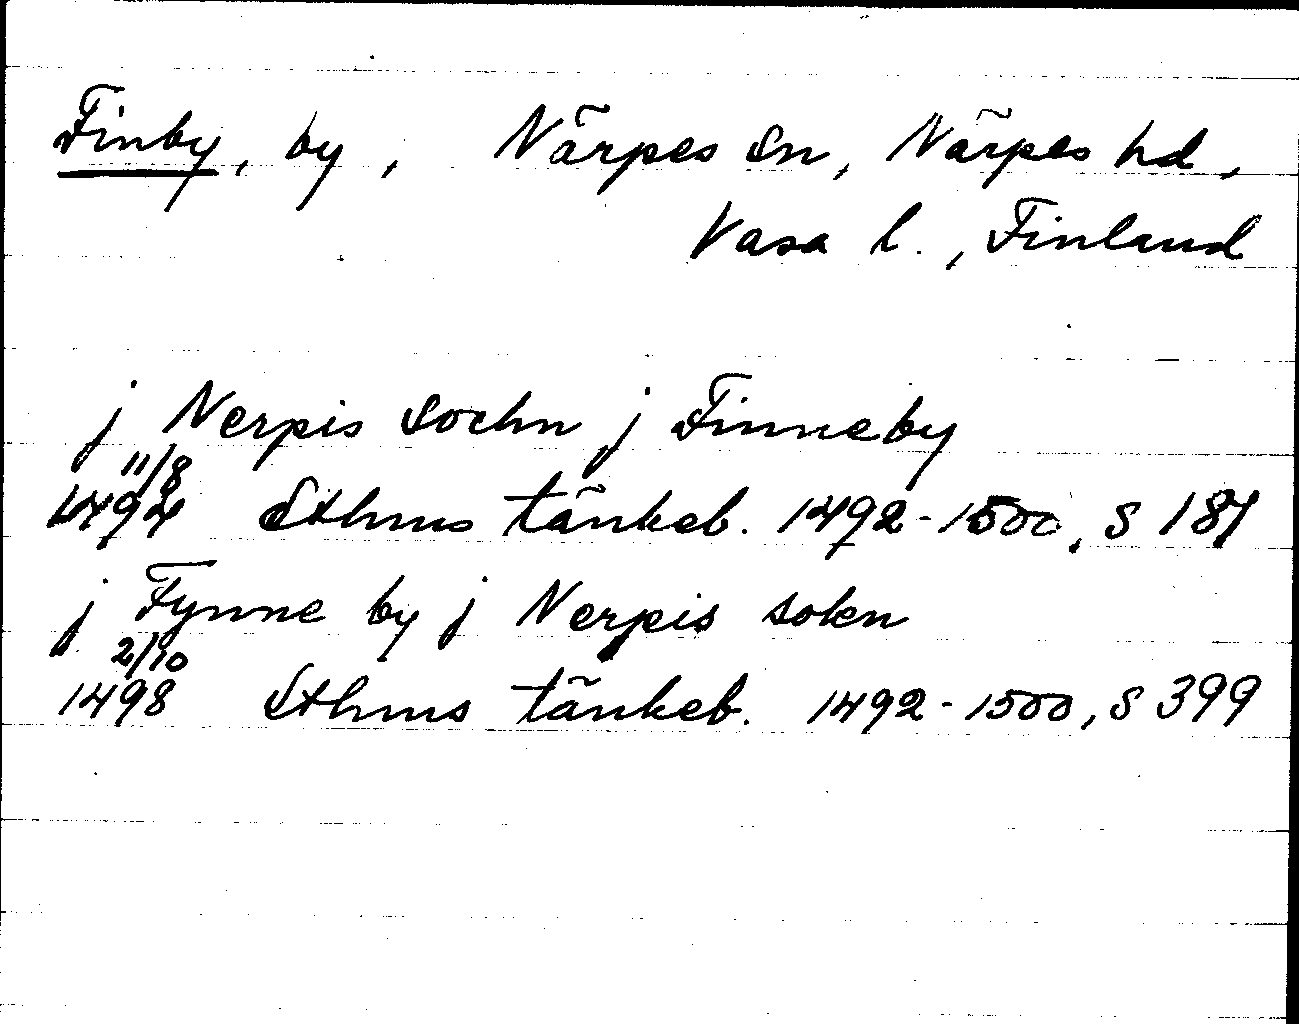 Finby, by, Närpes sn, Närpes hd,
Vasa l., Finland
j Nerpis Sochn j Finneby
11/8
1494 Sthms tänkeb. 1492-1500, s 187
j Fynne by j Nerpis sokn
2/10
1498 Sthms tänkeb. 1492-1500, s 399